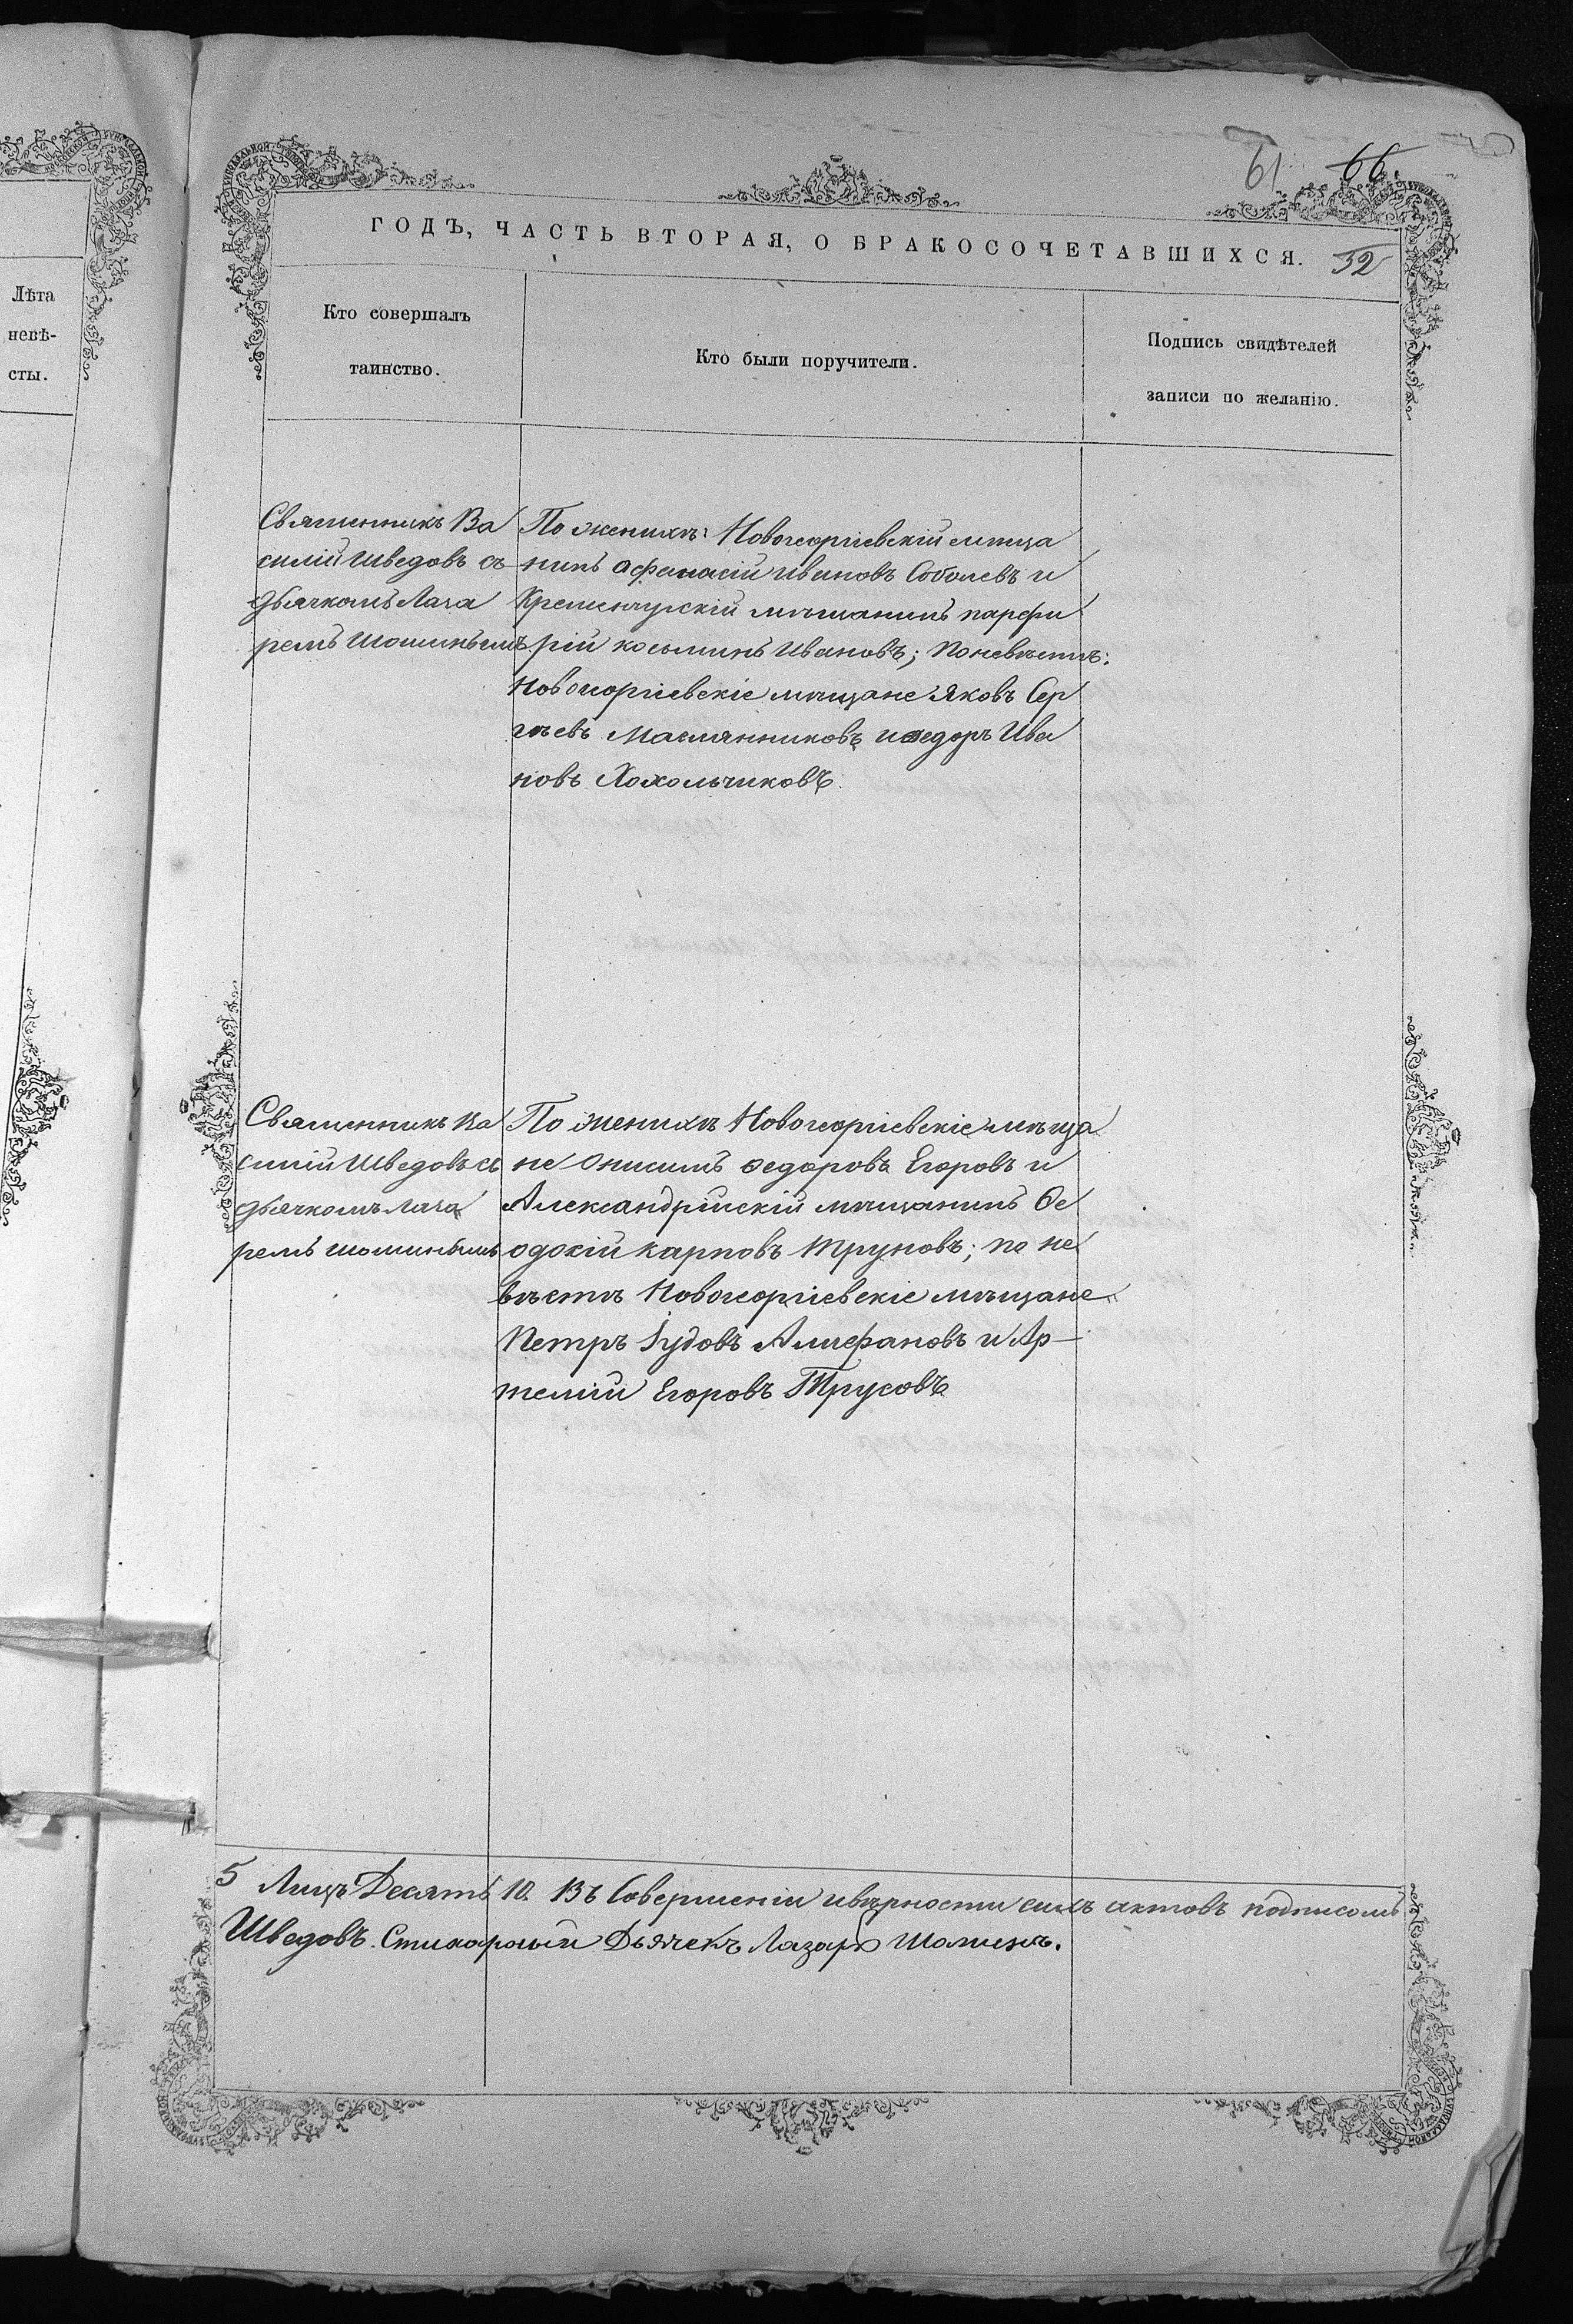 61 66
ГОДЪ, ЧАСТЬ ВТОРАЯ, О БРАКОСОЧЕТАВШИХСЯ.
32
Лѣта
невѣ-
сты.
Кто совершалъ
таинство.
Кто были поручители.
Подпись свидѣтелей
записи по желанію.
Священникъ Ва
силій Шведовъ съ
дьячкомъ Лаза
ремъ Шоминымъ
По женихѣ: Новогеоргіевскій мѣща
нинъ Афанасій Ивановъ Соболевъ и
Кременчугскій мѣщанинъ парфи
рій косьминъ Ивановъ; По невѣстѣ:
Новогеоргіевскіе мѣщане Яковъ Сер
гѣевъ Маслянниковъ и Ѳедоръ Ива
новъ Хохольчиковъ.
Священникъ Ва
силій Шведовъ съ
дьячкомъ Лаза
ремъ Шоминымъ
По женихѣ Новогеоргіевскіе мѣща
не Онисимъ Ѳедоровъ Егоровъ и
Александрійскій мѣщанинъ Ѳе
одосій карповъ Труновъ; по не
вѣстѣ Новогеоргіевскіе мѣщане
Петръ Іудовъ Алиефановъ и Ар-
темій Егоровъ Трусовъ
5 Лицъ Десять 10. Въ Совершеніи и вѣрности сихъ актовъ подписомъ
Шведовъ. Стихарный Дьячекъ Лазарь Шоминъ.